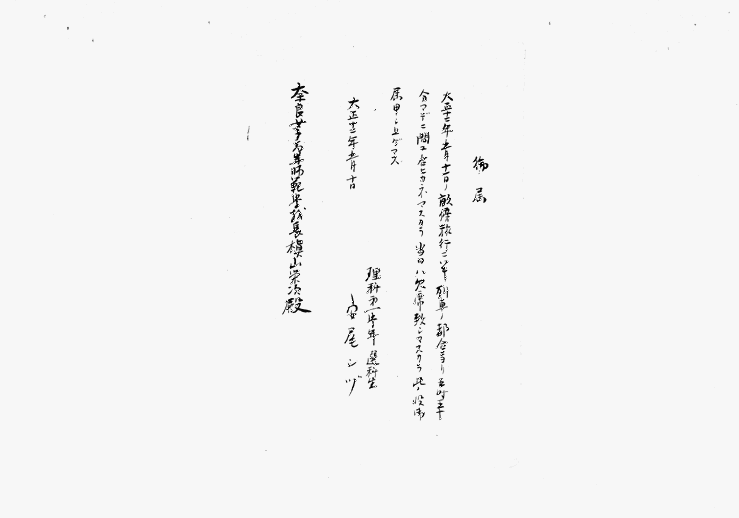 御届
大正十二年五月十一日ノ畝傍旅行ニハ 列車ノ都合ニヨリ 五十
分マデニ間ニ合ヒカネマスカラ当日ハ欠席致シマスカラ此ノ段御
届申シ上ゲマス
大正十二年五月十日
理科第一学年 選科生
安尾シヅ
奈良女子高等師範学校長槇山栄次殿